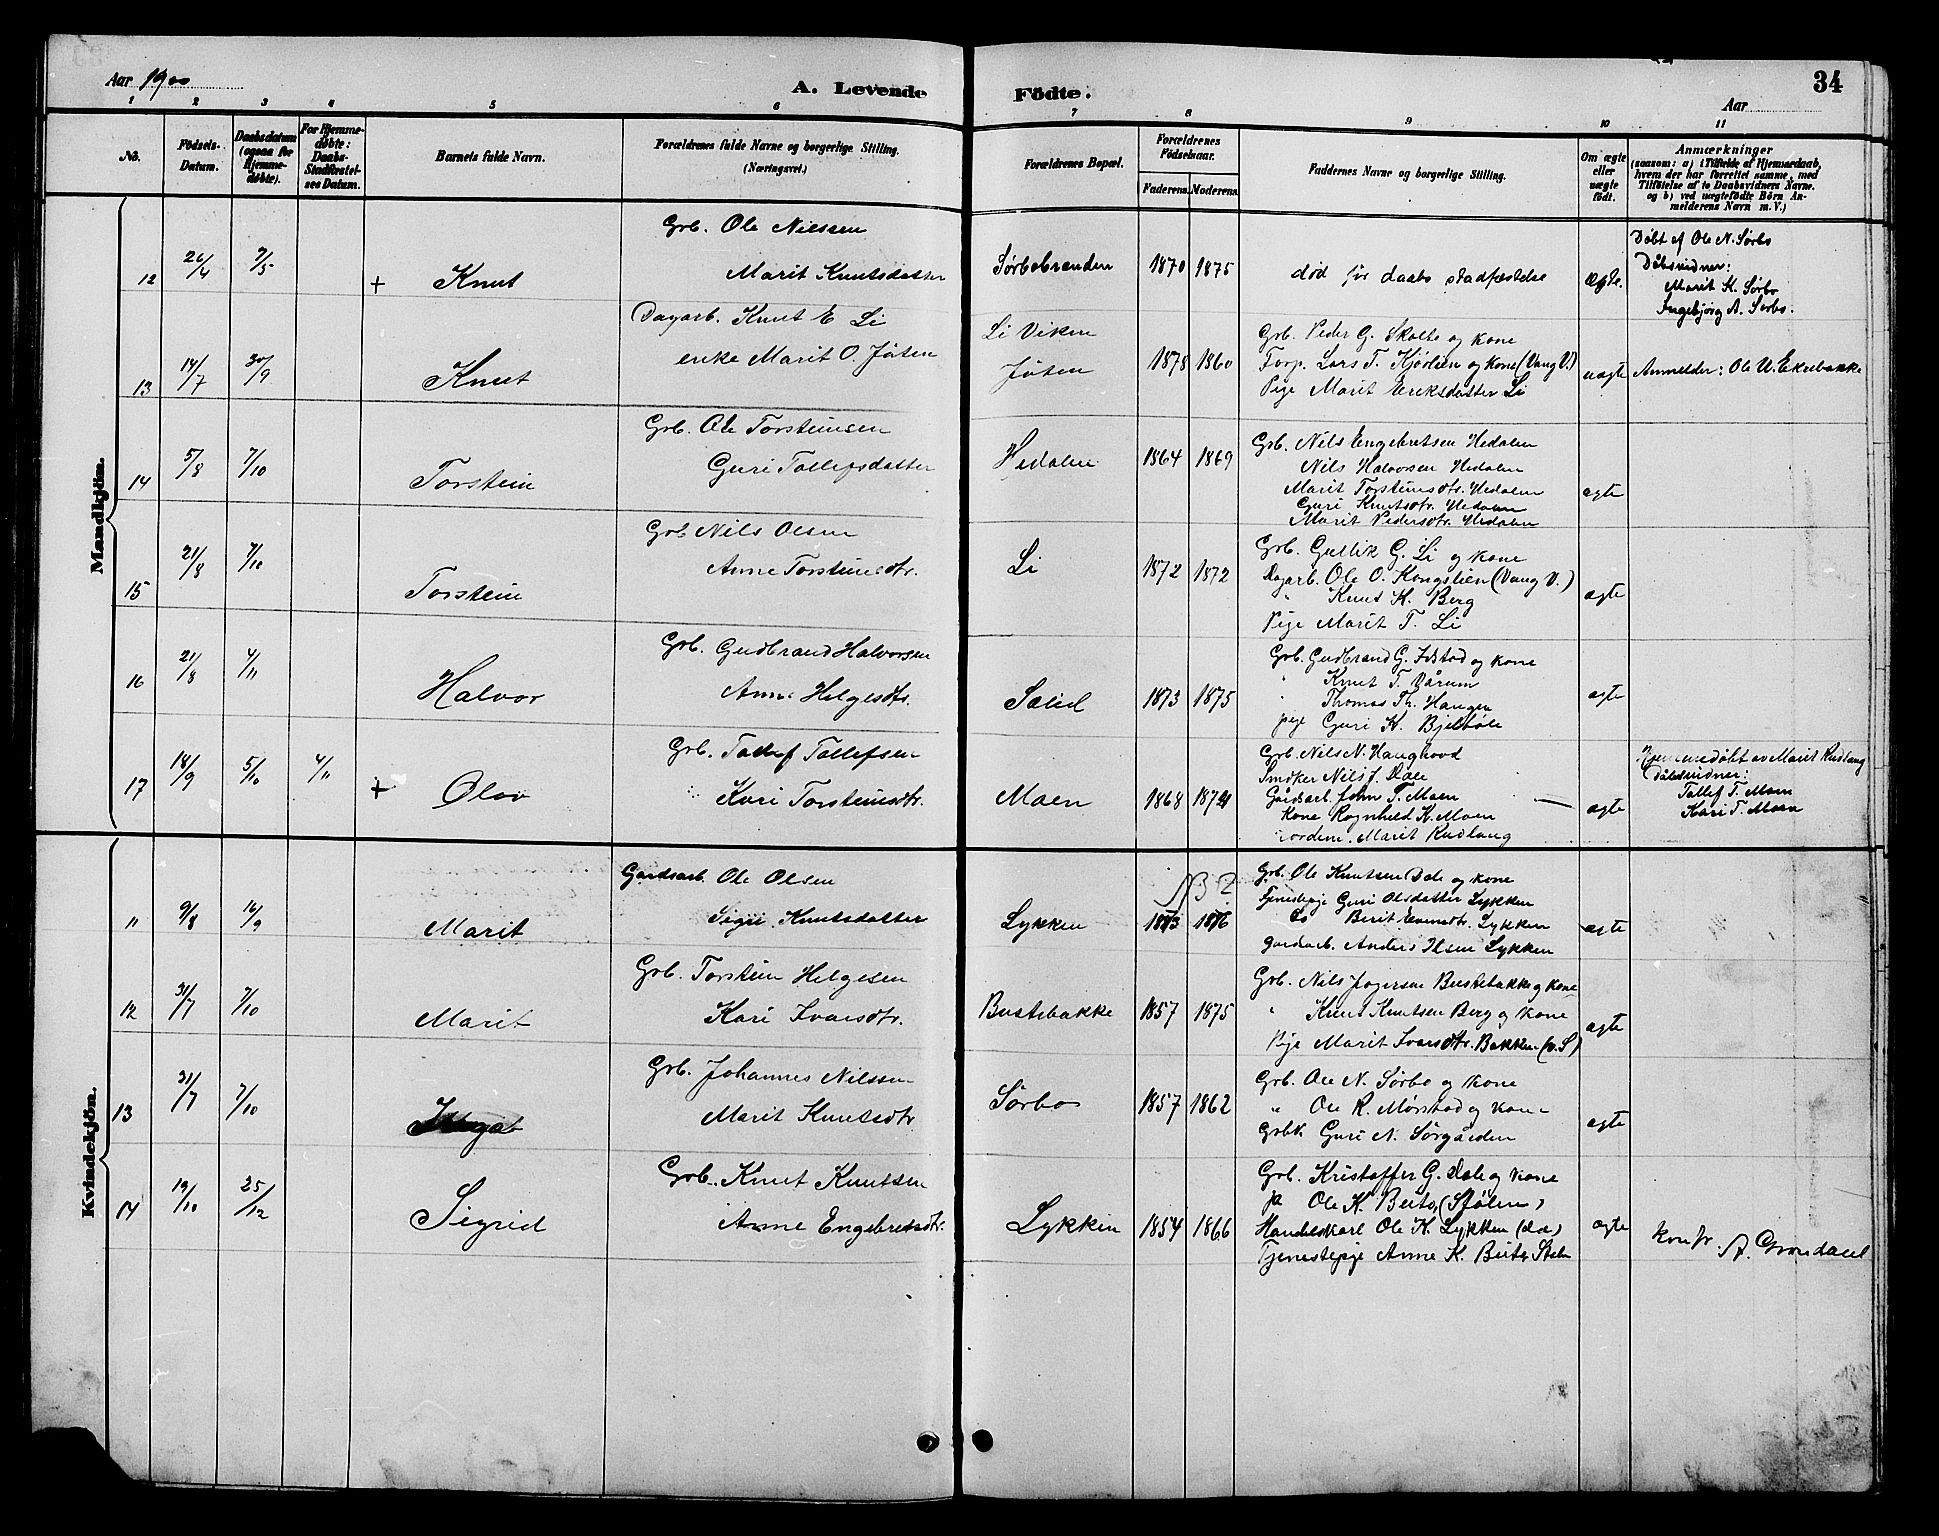 34
Aar 1900
A. Levende Födte.
Aar
1 2 3 4 5 6 7 8 9 10 11
No.
Födsels-Datum.
Daabsdatum (ogsaa for Hjemmedøbte).
For Hjemmedøbte: Daabs-Stadfæstelses Datum.
Barnets fulde Navn.
Forældrenes fulde Navne og borgerlige Stilling. (Næringsvei.)
Forældrenes Bopæl.
Forældrenes Födselsaar.
Faderens. Moderens.
Faddernes Navne og borgerlige Stilling.
Om ægte eller uægte födt.
Anmærkninger
(saasom: a) i Tilfælde af Hjemmedaab, hvem der har forrettet samme, med Tilföielse af to Daabsvidners Navne, og b) ved uægtefödte Börn Anmelderens Navn m. V.)
Mandkjön.
12 26/4 7/5 + Knut
Grb. Ole Nielsen
Marit Knutsdatter
Sørbobraaden 1870 1875
død før daabs stadfæstelse
ægte.
Døbt af Ole N. Sørbo
Dåbsvidner:
Marit K. Sørbo
Ingebjørg A. Sørbo.
13 14/7 30/9 Knut
Dagarb. Knut E Li
enke Marit O. Jøten
Li Viken
Jøten 1878 1860
Grb. Peder G. Skolte og kone
Forp. Lars T. Kjørlien og kone (Vang V.)
Pige Marit Eriksdatter Li
uægte
Anmelder: Ole U. Ekrebakke
14 5/8 7/10 Torstein
Grb. Ole Torsteinsen
Guri Tollefsdatter
Hedalen 1864 1869
Grb. Nils Engebretsen Hedalen
Nils Halvorsen Hedalen
Marit Torsteinsdtr. Hedalen
Guri Knutsdtr. Hedalen
Marit Pedersdtr. Hedalen
ægte
15 21/8 7/10 Torstein
Grb Nils Olsen
Anne Torsteinsdtr.
Li 1872 1872
Grb. Gullik G. Li og kone
Dagarb. Ole O. Kongslien (Vang V.)
" Knut K. Berg
Pige Marit T. Li
ægte
16 21/8 4/11 Halvor
Grb. Gudbrand Halvorsen
Anne Helgesdtr.
1873 1875
Grb. Gudbrand G. Fystad og kone
" Knut T. Vårum
" Thomas Th. Haugen
pige Guri K. Bjelbøle
ægte
17 18/9 5/10 4/11 + Olav
Grb. Tollef Tollefsen
Kari Torsteinsdtr.
Moen 1868 1874
Grb Nils N. Haughovd
Smøker Nils J. Dale
Gårdsarb. John T. Moen
Kone Ragnhild K. Moen
Jordem. Marit Rudlang
ægte
Hjemmedøbt av Marit Rudlang
Dåbsvidner:
Tollef T. Moen
Kari T. Moen
Kvindekjön.
11 9/8 16/9 Marit
Gardsarb. Ole Olsen
Sigri Knutsdatter
Lykken 1873 1876
NB ?
Grb. Ole Knutsen Dale og kone
Tjenestepige Guri Olsdatter Lykken
Do Berit Evensdtr. Lykken
gardarb. Anders Olsen Lykken
ægte
12 31/7 7/10 Marit
Grb. Torstein Helgesen
Kari Ivarsdtr.
Bustebakke 1857 1875
Grb. Nils Jogersen Bustebakke og kone
" Knut Knutsen Berg og kone
Pige Marit Ivarsdtr. Bakken (v.S)
ægte
13 31/7 7/10
Grb. Johannes Nilssen
Marit Knutsdtr
Sørbo 1857 1862
Grb. Ole N. Sørbo og kone
" Ole K. Mørstad og kone
Grbk. Guri N. Sørgården
ægte
14 19/10 25/12 Sigrid
Grb. Knut Knutsen
Anne Engebretsdtr.
Lykken 1854 1866
Grb. Kristoffer G. Dale og kone
Ole K. Beito (Stølen)
Handelskarl Ole K. Lykken (do)
Tjenestepige Anne K. Beito Stølen
ægte
konfr. A. Grøndahl